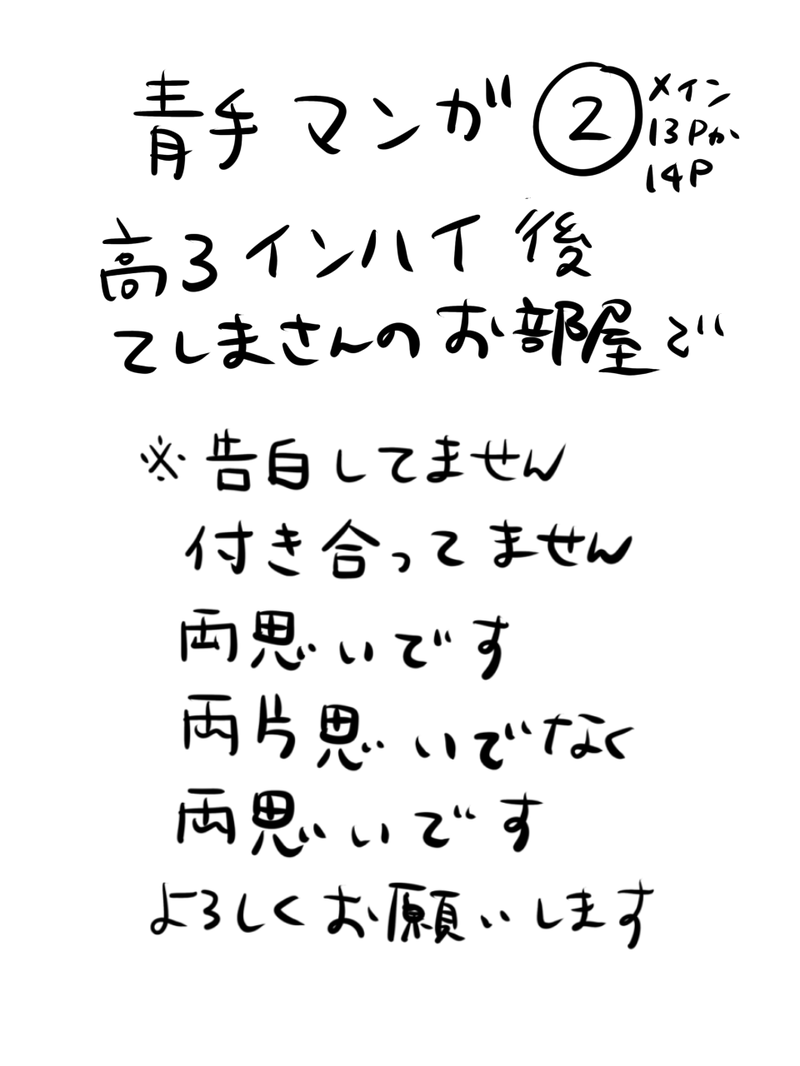 青手マンガ②
メイン
13Pか
14P
高3インハイ後
てしまさんのお部屋で
※告白してません
付き合ってません
両思いです
両片思いでなく
両思いです
よろしくお願いします